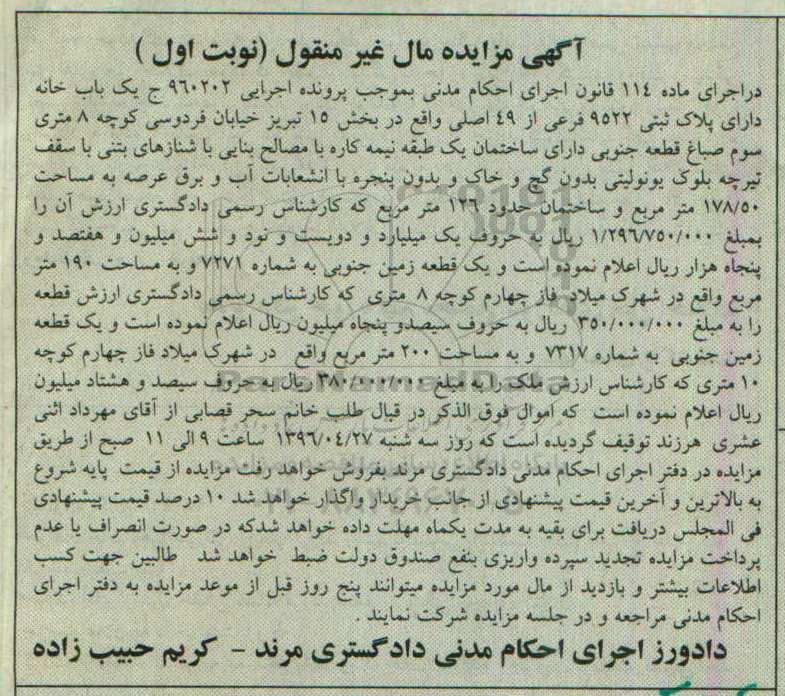 آگهی مزایده مال غیر منقول (نوبت اول )
دراجرای ماده ۱۱۴ قانون اجرای احکام مدنی بموجب پرونده اجرایی ۹۶۰۲۰۲ ج یک باب خانه
دارای پلاک ثبتی ۹۵۲۲ فرعی از ۴۹ اصلی واقع در بخش ۱۵ تبریز خیابان فردوسی کوچه ۸ متری
سوم صباغ قطعه جنوبی دارای ساختمان یک طبقه نیمه کاره با مصالح بنایی با شنازهای بتنی با سقف
تیرچه بلوک یونولیتی بدون گچ و خاک و بدون پنجره با انشعابات آب و برق عرصه به مساحت
۱۷۸/۵۰ متر مربع و ساختمان حدود ۱۲۶ متر مربع که کارشناس رسمی دادگستری ارزش آن را
بمبلغ ۱/۲۹۶/۷۵۰/۰۰۰ ریال به حروف یک میلیارد و دویست و نود و شش میلیون و هفتصد و
پنجاه هزار ریال اعلام نموده است و یک قطعه زمین جنوبی به شماره ۷۲۷۱ و به مساحت ۱۹۰ متر
مربع واقع در شهرک میلاد فاز چهارم کوچه ۸ متری که کارشناس رسمی دادگستری ارزش قطعه
را به مبلغ ۳۵۰/۰۰۰/۰۰۰ ریال به حروف سیصدو پنجاه میلیون ریال اعلام نموده است و یک قطعه
زمین جنوبی به شماره ۷۳۱۷ و به مساحت ۲۰۰ متر مربع واقع در شهرک میلاد فاز چهارم کوچه
۱۰ متری که کارشناس ارزش ملک را به مبلغ ۳۸۰/۰۰۰/۰۰۰ ریال به حروف سیصد و هشتاد میلیون
ریال اعلام نموده است که اموال فوق الذکر در قبال طلب خانم سحر قصابی از آقای مهرداد اثنی
عشری هرزند توقیف گردیده است که روز سه شنبه ۱۳۹۶/۰۴/۲۷ ساعت ۹ الی ۱۱ صبح از طریق
مزایده در دفتر اجرای احکام مدنی دادگستری مرند بفروش خواهد رفت مزایده از قیمت پایه شروع
به بالاترین و آخرین قیمت پیشنهادی از جانب خریدار واگذار خواهد شد ۱۰ درصد قیمت پیشنهادی
فی المجلس دریافت برای بقیه به مدت یکماه مهلت داده خواهد شدکه در صورت انصراف یا عدم
پرداخت مزایده تجدید سپرده واریزی بنفع صندوق دولت ضبط خواهد شد طالبین جهت کسب
اطلاعات بیشتر و بازدید از مال مورد مزایده میتوانند پنج روز قبل از موعد مزایده به دفتر اجرای
احکام مدنی مراجعه و در جلسه مزایده شرکت نمایند .
دادورز اجرای احکام مدنی دادگستری مرند - کریم حبیب زاده
ParsNamadData